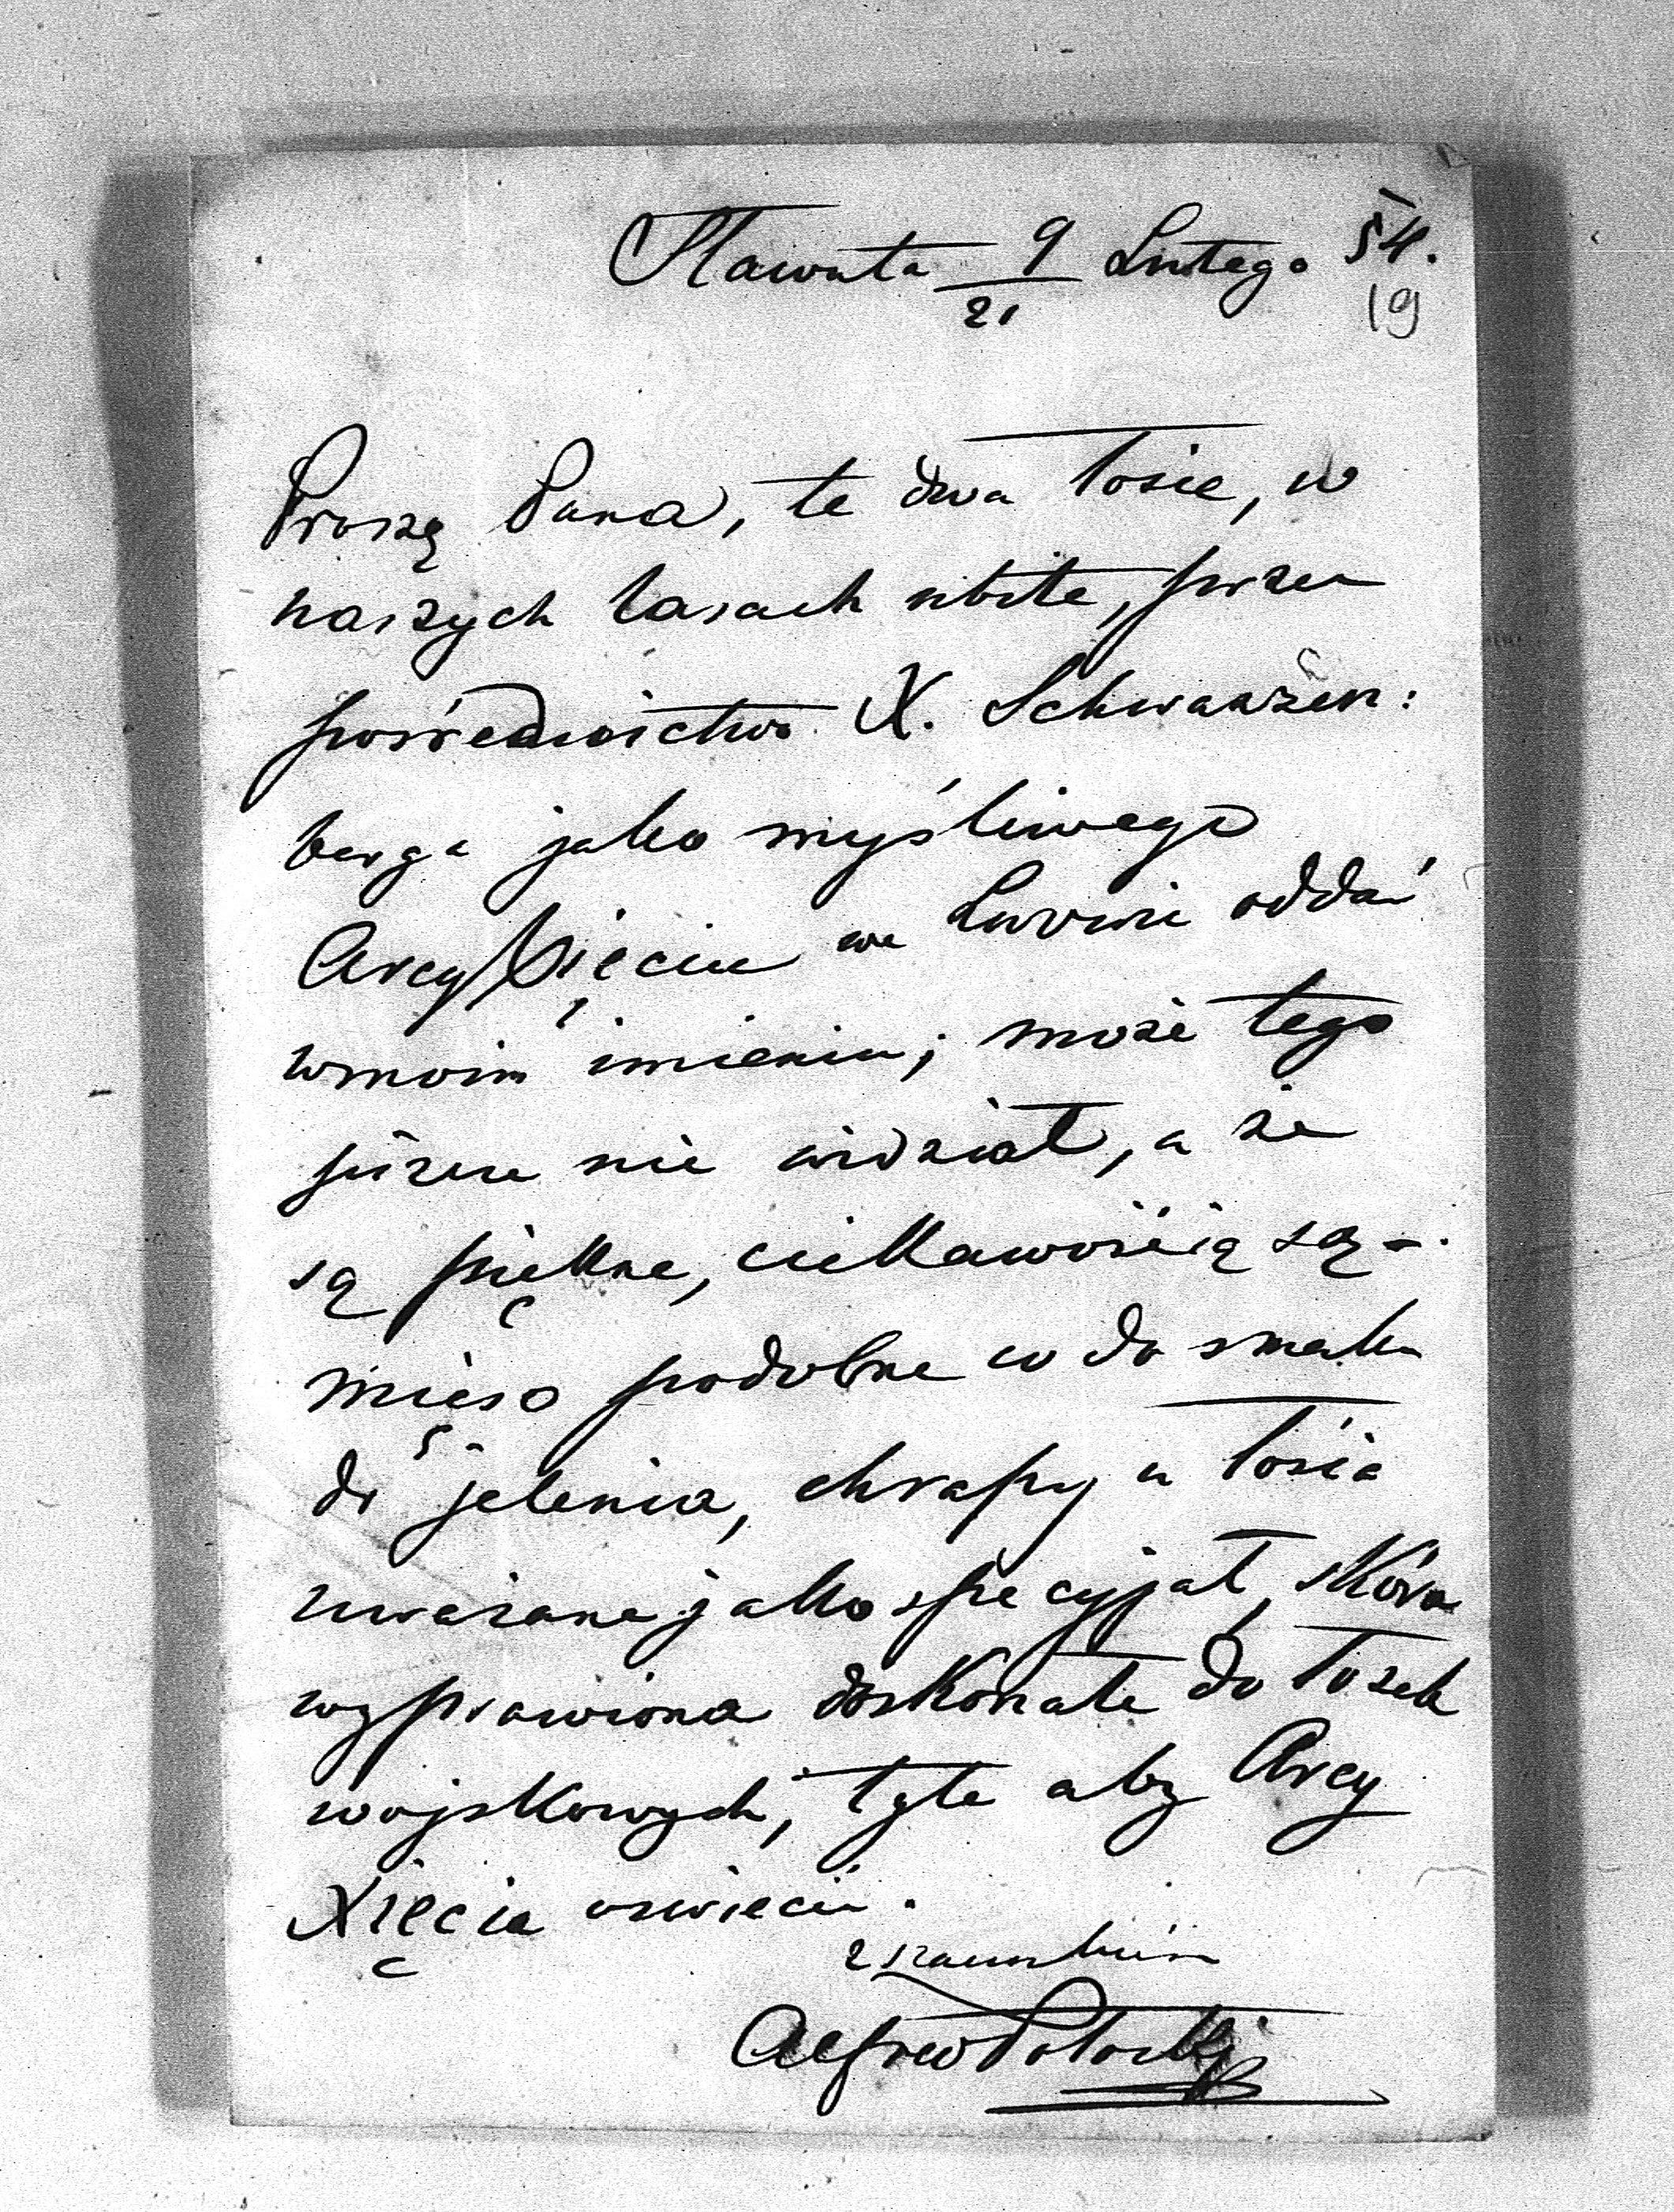 Sławuta 9/21 Lutego 54.
19
Proszę Pana, te dwa łosie, w
naszych lasach ubite, przez
pośrednictwo X. Schwarzen:
berga jako myśliwego
ArcyXięciu we Lwowie oddać
w moim imieniu; może tego
jeszcze nie widział, a że
są piękne, ciekawością są -
mięso podobne co do smaku
do jelenia, chrapy u łosia
uważane jako specyjał, skóra
wyprawiona doskonałe do łózek
wojskowych, tyle aby Arcy
Xięcia
z szacunkiem
Alfred Potocki